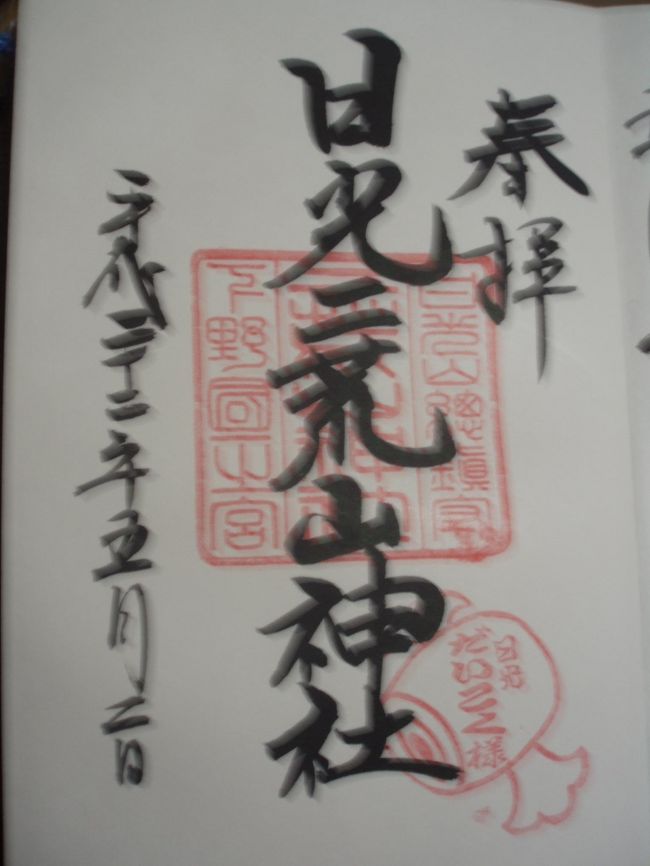 奉拝
日光二荒山神社
平成二十二年五月二日
日光山総鎮守
二荒山神社
下野国一之宮
日光
だいこく様